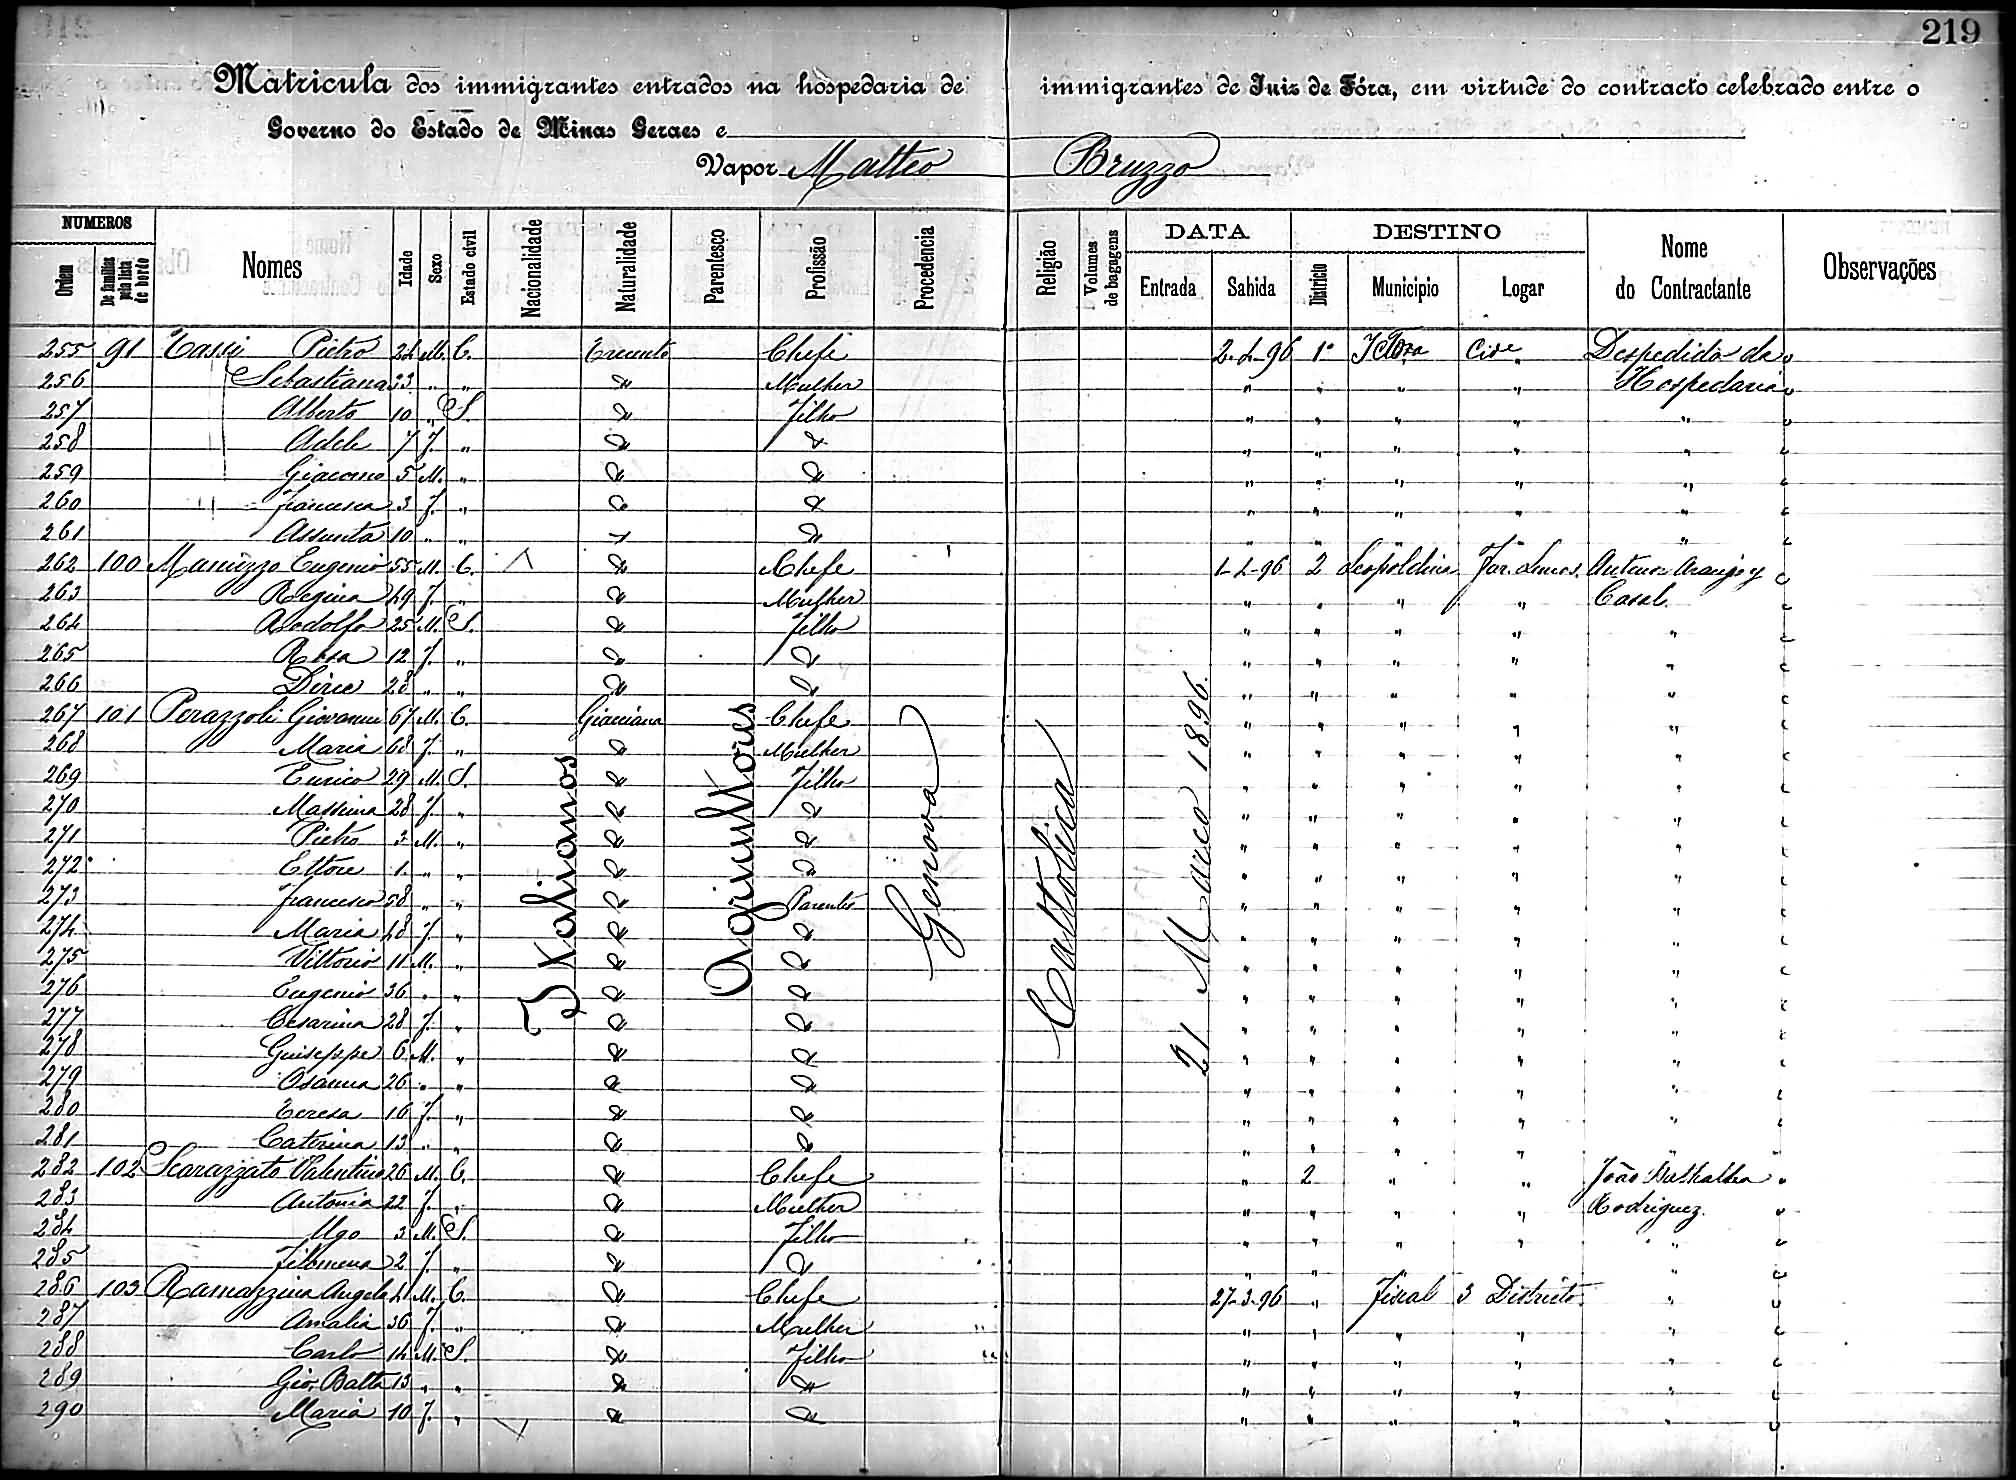 219
Matricula dos immigrantes entrados na hospedaria de immigrantes de Juiz de Fóra, em virtude do contracto celebrado entre o
Governo do Estado de Minas Geraes e
Vapor Matteo Bruzzo
NUMEROS DATA DESTINO
Ordem De familias pela lista de bordo Nomes Idade Sexo Estado civil Nacionalidade Naturalidade Parentesco Profissão Procedencia Religião Volumes de bagagens Entrada Sahida Districto Municipio Logar Nome do Contractante Observações
255 91 Pietro M. C. Chefe 2-4-96 1º Despedida da
256 Sebastiana 33 " " " Mulher " " " " Hospedaria
257 Alberto 10 " S. " Filho " " " " "
258 Adele 7 F. " " " " " " " "
259 Giacomo 5 M. " " " " " " " "
260 Francesca 3 F. " " " " " " " "
261 Assunta 10 " " " " " " " " "
262 100 Eugenio 55 M. C. " Chefe 1-4-96 2 Leopoldina Antenor Araujo y
263 Regina 49 F. " " Mulher " " " " Casal.
264 Rodolfo 25 M. S. " Filho " " " " "
265 Rosa 12 F. " " " " " " " "
266 Dirce 28 " " " " " " " " "
267 101 Perazzoli Giovanni 67 M. C. Chefe " " " " "
268 Maria 68 F. " " Mulher " " " " "
269 Enrico 29 M. S. " Filho " " " " "
270 Massima 28 F. " " " " " " " "
271 Pietro 3 M. " " " " " " " "
272 Ettore 1 " " " " " " " " "
273 Francesco 58 " " " Parentes " " " " "
274 Maria 48 F. " " " " " " " "
275 Vittorio 11 M. " " " " " " " "
276 Eugenio 36 " " " " " " " " "
277 Cesarina 28 F. " " " " " " " "
278 Guiseppe 6 M. " " " " " " " "
279 Osanna 26 " " " " " " " " "
280 Teresa 16 F. " " " " " " " "
281 Caterina 13 " " " " " " " " "
282 102 Scarazzato Valentino 26 M. C. " Chefe " 2 " " João
283 Antonia 22 F. " " Mulher " " " " Rodriguez.
284 Ugo 3 M. S. " Filho " " " " "
285 Filomena 2 F. " " " " " " " "
286 103 Ramazzina Angelo M. C. " Chefe 27-3-96 " Fiscal 3 Districto. "
287 Amalia 36 F. " " Mulher " " " " "
288 Carlo 14 M. S. " Filho " " " " "
289 Gio. Batta 13 " " " " " " " " "
290 Maria 10 F. " " " " " " " "
Italianos
Agricultores
Genova
Cattolica
21 Março 1896.